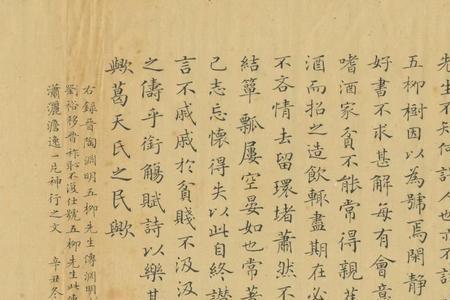 先生不知何許人也亦不詳
五柳樹因以為號焉閑靜
好書不求甚解每有會意
嗜酒家貧不能常得親
酒而招之造飲輒盡期在必
不吝情去留環堵蕭然不
結簞瓢屢空晏如也常著
己志忘懷得失以此自終
言不戚戚於貧賤不汲汲
之儔乎銜觴賦詩以樂其
歟葛天氏之民歟
右錄晉陶淵明五柳先生傳淵明
劉裕移晉祚耻不復仕號五柳先生此傳
瀟灑澹逸一片神行之文 辛丑冬